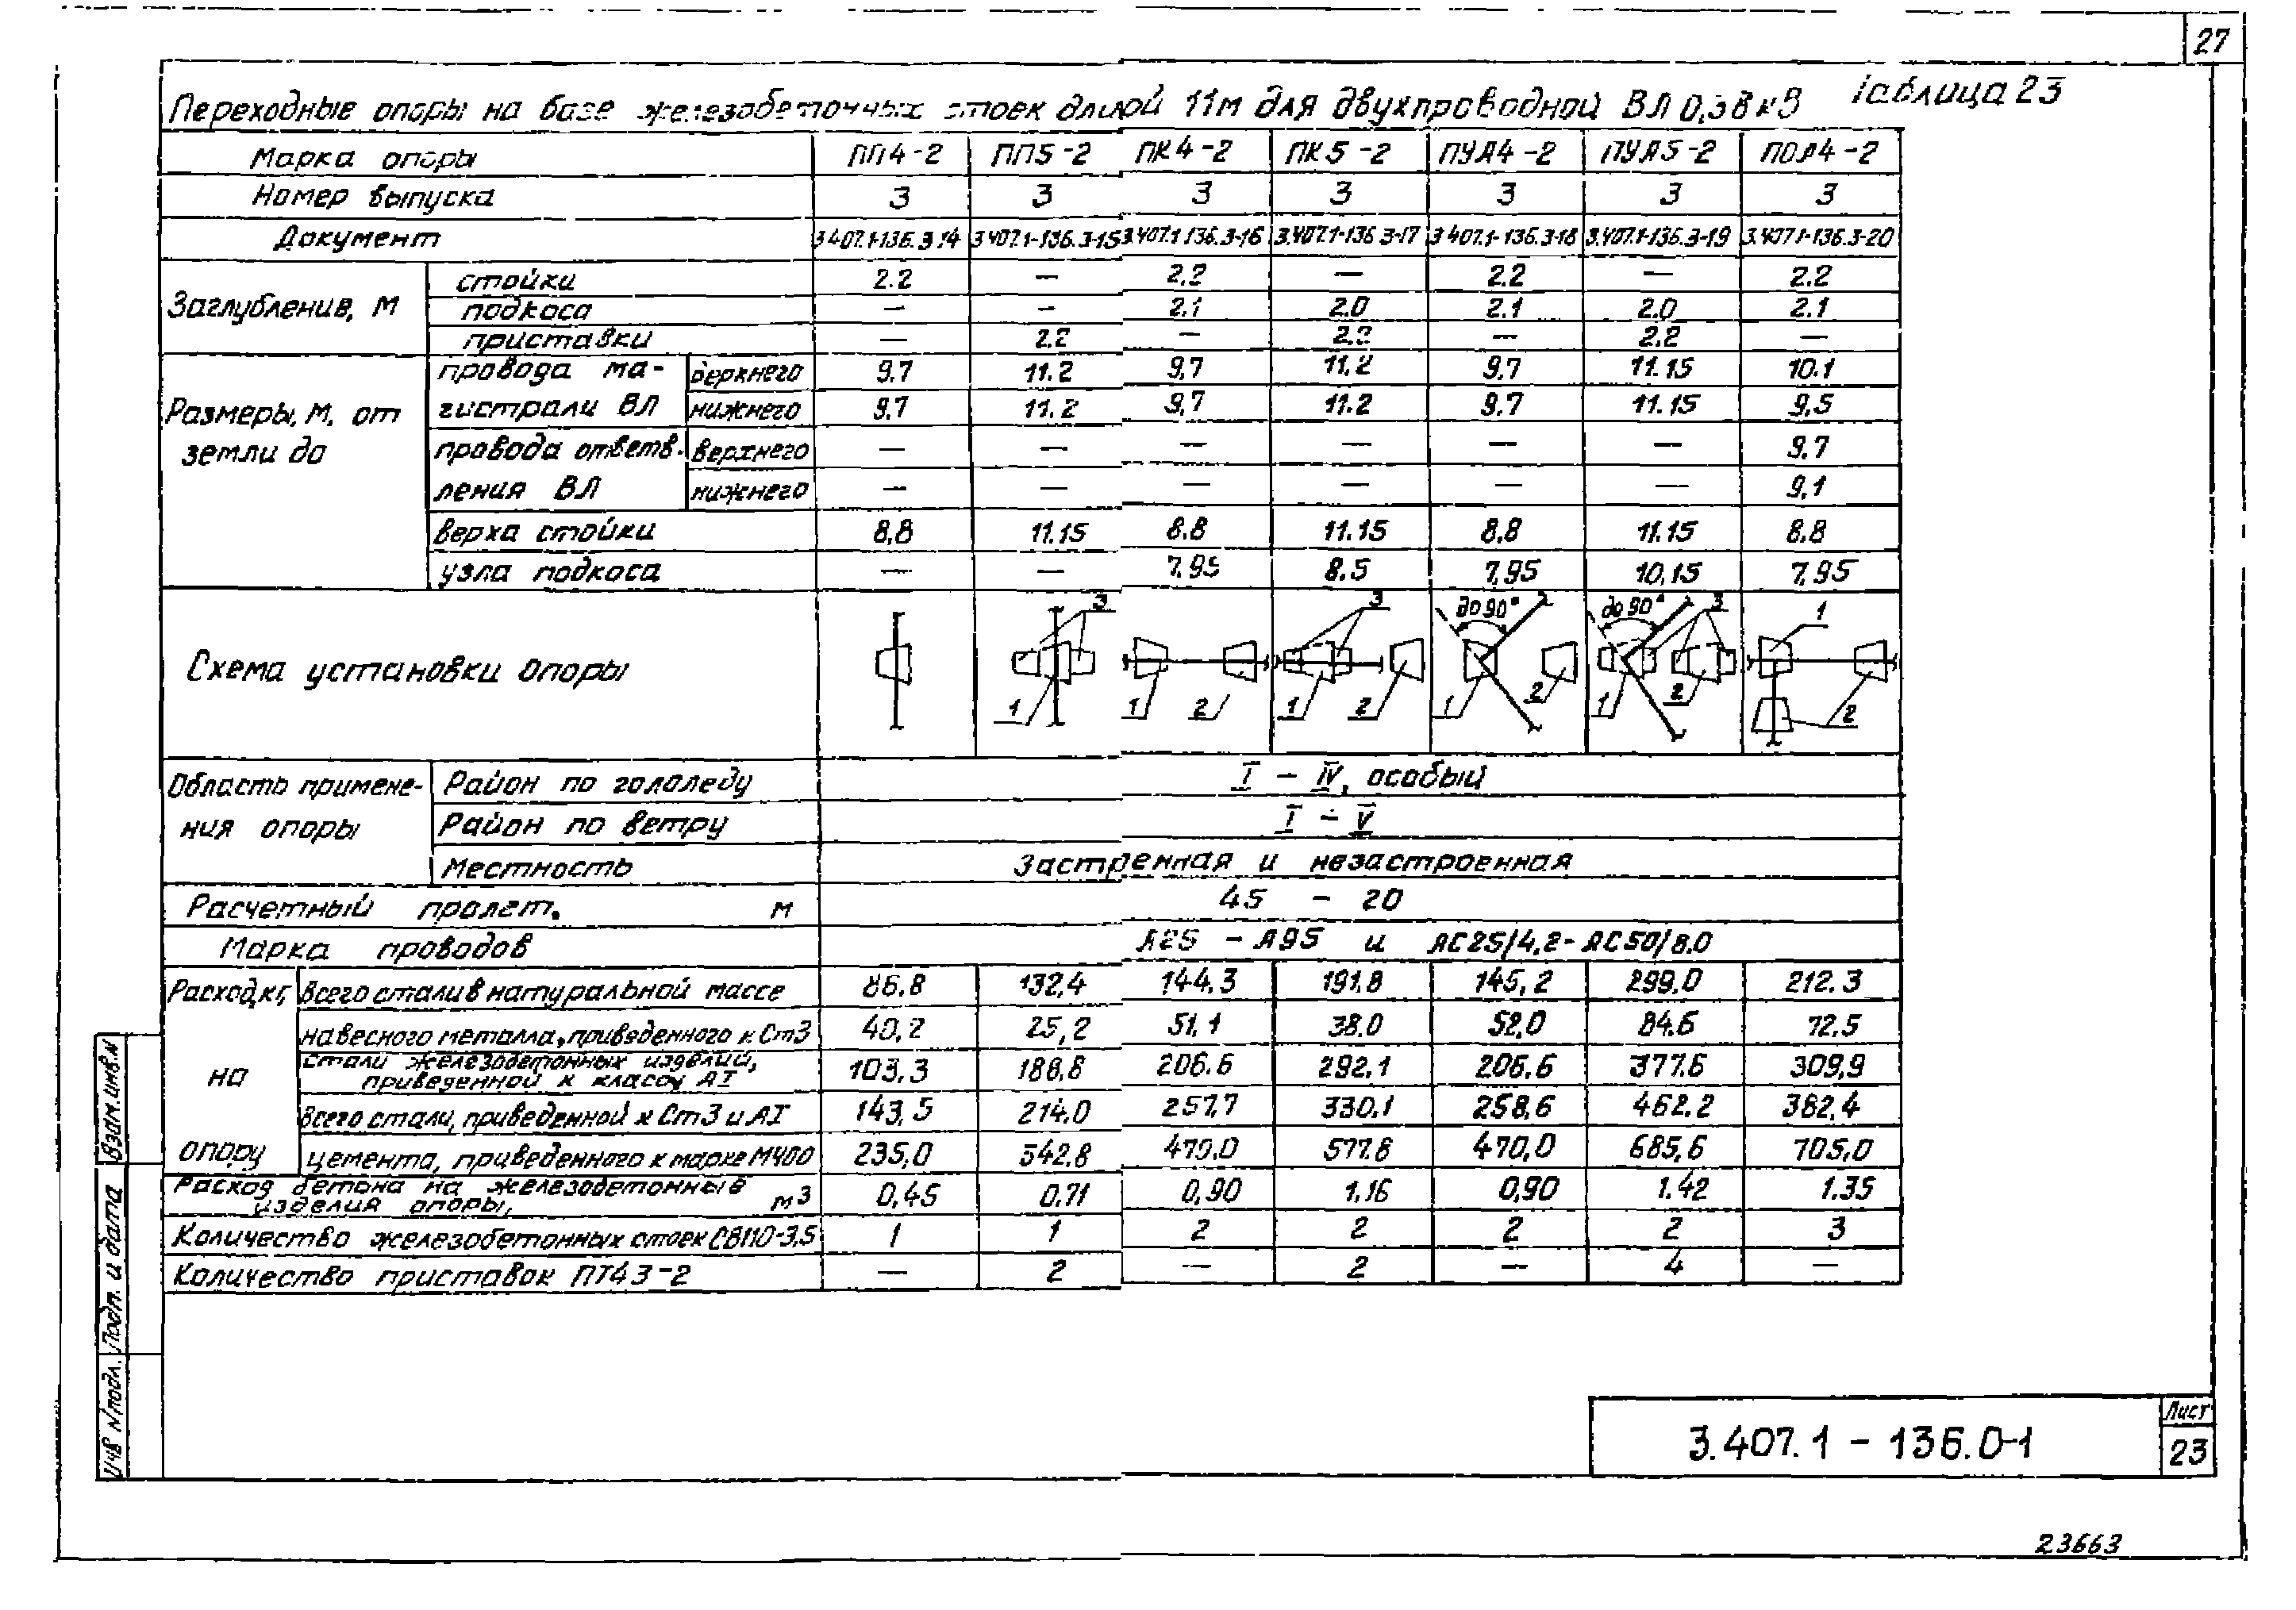 27
Таблица 23
Переходные опоры на базе железобетонных стоек длиной 11м для двухпроводной ВЛ 0,38 кВ
Марка опоры ПП4-2 ПП5-2 ПК4-2 ПК5-2 ПУА4-2 ПУА5-2 ПОА4-2
Номер выпуска 3 3 3 3 3 3 3
Документ 3.407.1-136.3.14 3.407.1-136.3-15 3.407.1.136.3-16 3.407.1-136.3-17 3.407.1-136.3-18 3.407.1-136.3-19 3.407.1-136.3-20
Заглубление, м
стойки 2.2 — 2.2 — 2.2 — 2.2
подкоса — — 2.1 2.0 2.1 2.0 2.1
приставки — 2.2 — 2.2 — 2.2 —
Размеры, м, от земли до
провода магистрали ВЛ
верхнего 9.7 11.2 9,7 11,2 9.7 11.15 10.1
нижнего 9.7 11.2 9,7 11.2 9.7 11.15 9,5
провода ответвления ВЛ
верхнего — — — — — — 9.7
нижнего — — — — — — 9,1
верха стойки 8,8 11.15 8.8 11.15 8,8 11.15 8.8
узла подкоса — — 7.95 8.5 7.95 10,15 7.95
Схема установки опоры
3 1 1 2 3 1 2 до 90° 1 2 до 90° 3 1 2 1 2
Область применения опоры
Район по гололеду I – IV, особый
Район по ветру I – V
Местность Застренная и незастроенная
Расчетный пролет, м 45 – 20
Марка проводов А25 – А95 и АС25/4,2- АС50/8.0
Расход, кг, на опору
всего стали в натуральной массе 86.8 132,4 144.3 191.8 145,2 299.0 212.3
навесного металла, приведенного к Ст3 40,2 25,2 51,1 38.0 52,0 84.6 72.5
стали железобетонных изделий, приведенной к классу АI 103,3 188,8 206.6 292.1 206.6 377.6 309,9
Всего стали, приведенной к Ст3 и АI 143,5 214.0 257,7 330.1 258,6 462.2 382,4
цемента, приведенного к марке М400 235,0 342,8 470.0 577.8 470,0 685,6 705,0
Расход бетона на железобетонные изделия опоры, м3 0,45 0.71 0,90 1,16 0,90 1.42 1.35
Количество железобетонных стоек СВ110-3.5 1 1 2 2 2 2 3
Количество приставок ПТ43-2 — 2 — 2 — 4 —
Взам.инв.N
Подп. и дата
Инв N подл.
3.407.1 – 136.0-1
Лист
23
23663